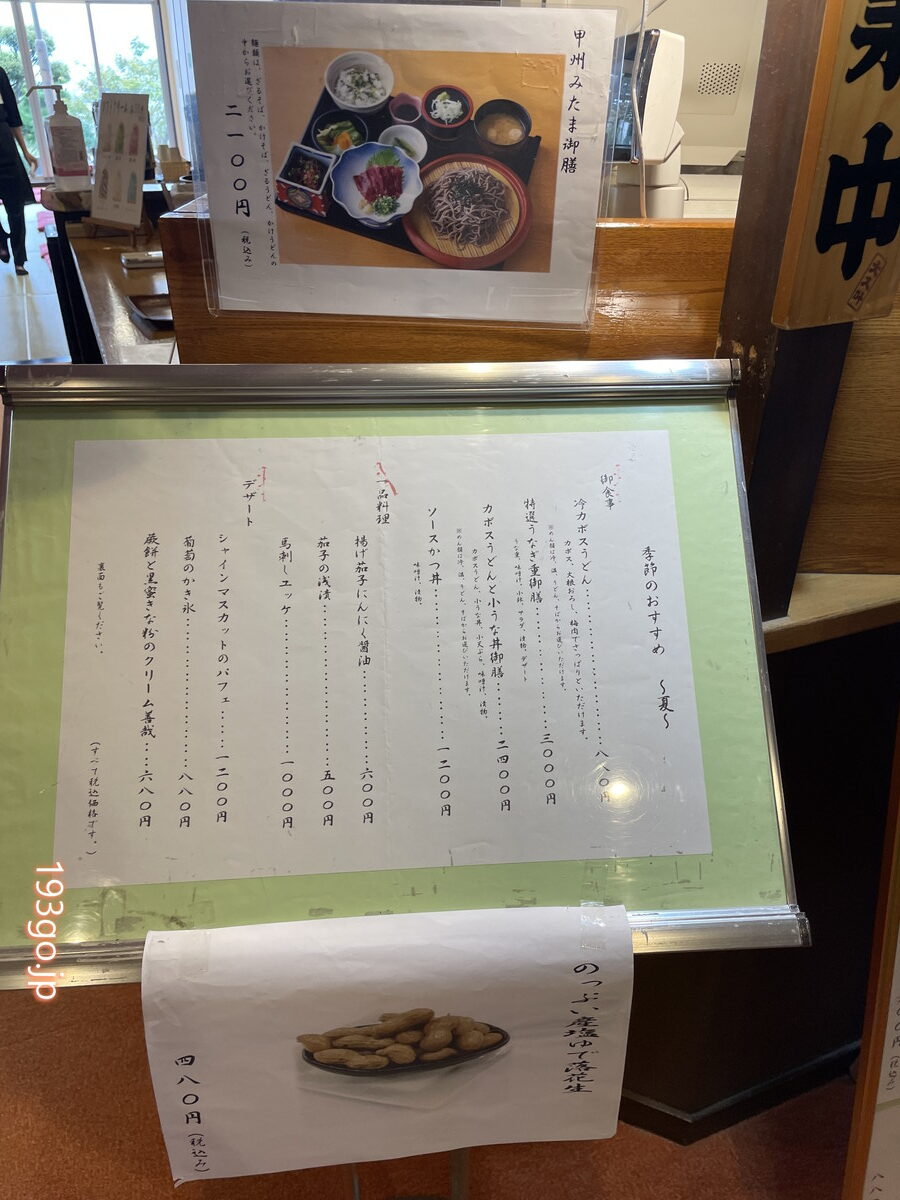 甲州みたま御膳
麺類は、ざるそば、かけそば、ざるうどん、かけうどんの
中からお選びください。
二一〇〇円 (税込み)
中
季節のおすすめ ～夏～
御食事
冷カボスうどん‥‥‥八八〇円
カボス、大根おろし、梅肉でさっぱりといただけます。
※めん類は冷、温、うどん、そばからお選びいただけます。
特選うなぎ重御膳‥‥‥三〇〇〇円
うな重、味噌汁、小鉢、サラダ、漬物、デザート
カボスうどんと小うな丼御膳‥‥‥二四〇〇円
カボスうどん、小うな丼、小天ぷら、味噌汁、漬物。
※めん類は冷、温、うどん、そばからお選びいただけます。
ソースかつ丼‥‥‥一二〇〇円
味噌汁、漬物。
一品料理
揚げ茄子にんにく醤油‥‥‥六〇〇円
茄子の浅漬‥‥‥五〇〇円
馬刺しユッケ‥‥‥一〇〇〇円
デザート
シャインマスカットのパフェ‥‥‥一二〇〇円
葡萄のかき氷‥‥‥八八〇円
蕨餅と黒蜜きな粉のクリーム善哉‥‥‥六八〇円
裏面もご覧ください。
(すべて税込価格です。)
のっぷい産塩ゆで落花生
四八〇円 (税込み)
193go.jp